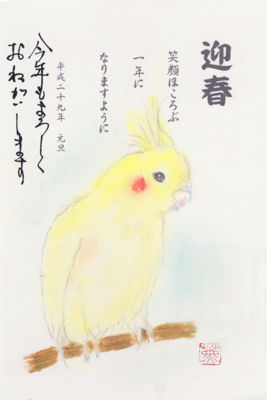 迎春
笑顔ほころぶ
一年に
なりますように
平成二十九年 元旦
今年もよろしく
おねがいします